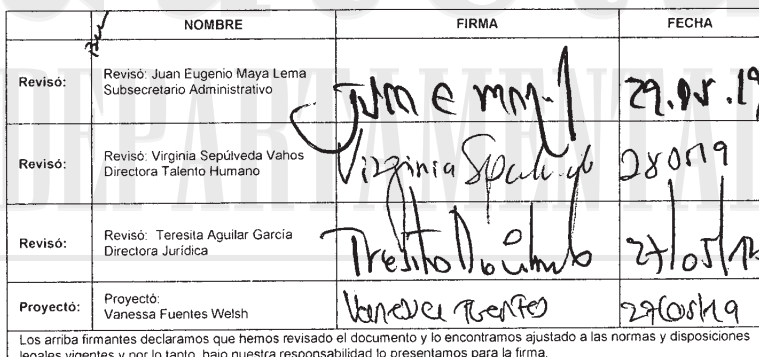 NOMBRE FIRMA FECHA
Revisó: Revisó: Juan Eugenio Maya Lema
Subsecretario Administrativo
29.05.19
Revisó: Revisó: Virginia Sepúlveda Vahos
Directora Talento Humano
Virginia 280519
Revisó: Revisó: Teresita Aguilar García
Directora Jurídica
27/05/19
Proyectó: Proyectó:
Vanessa Fuentes Welsh
Vanessa Fuentes 27/05/19
Los arriba firmantes declaramos que hemos revisado el documento y lo encontramos ajustado a las normas y disposiciones
legales vigentes y por lo tanto, bajo nuestra responsabilidad lo presentamos para la firma.
DEPARTAMENTAL